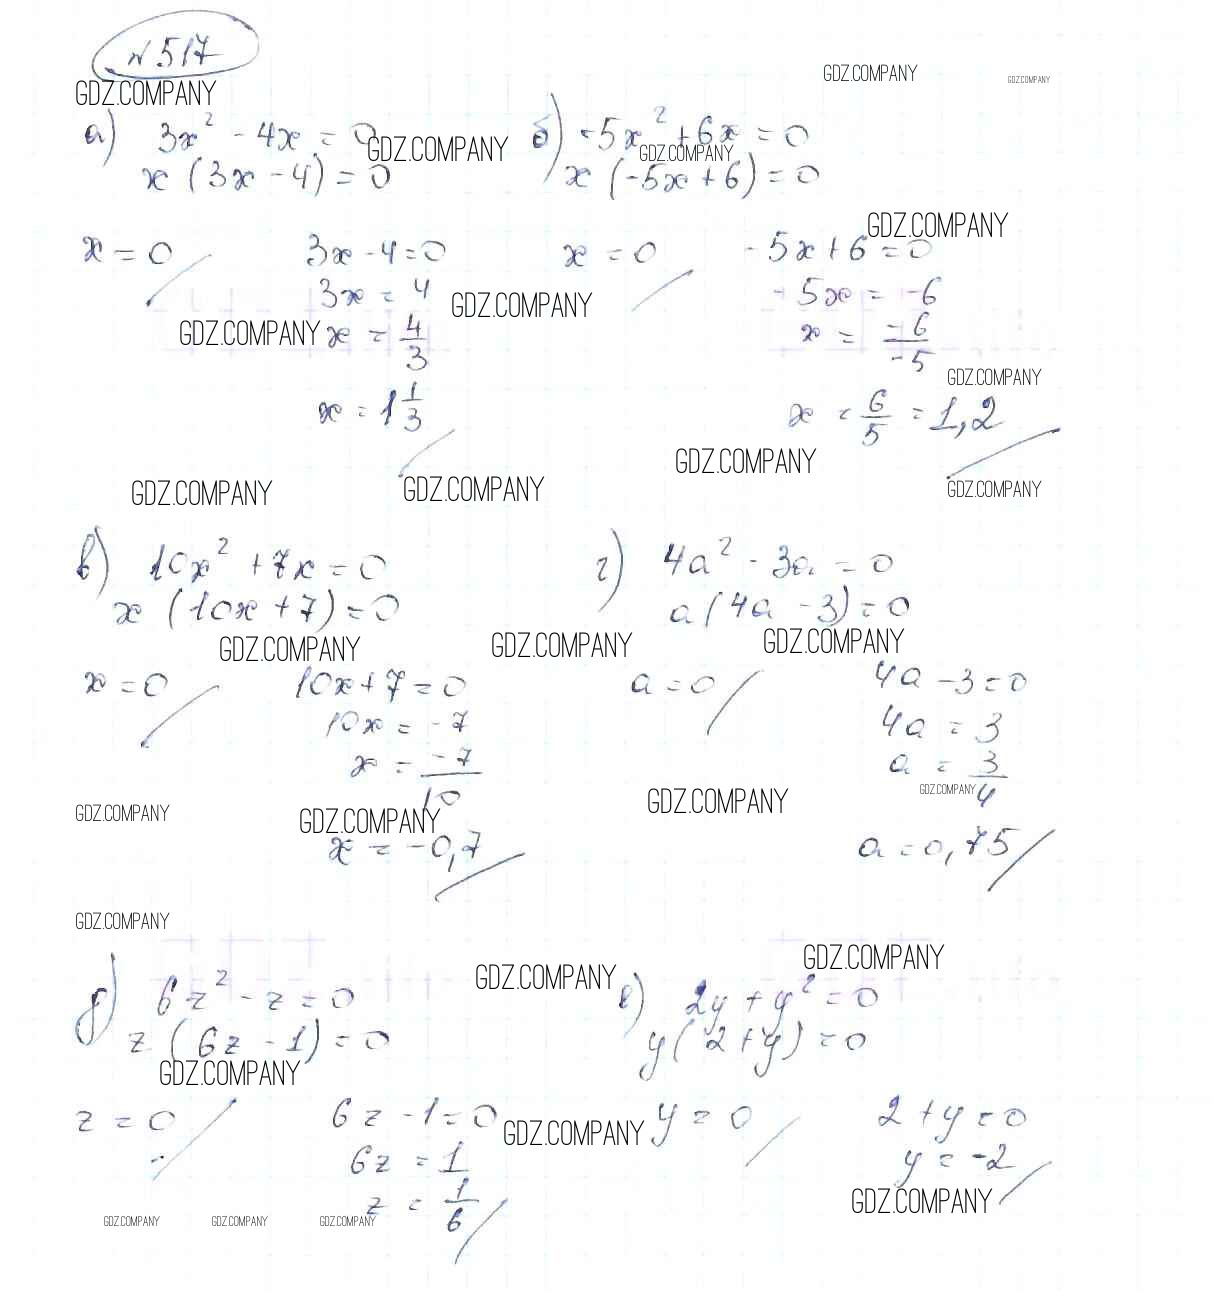 №517
GDZ.COMPANY
GDZ.COMPANY GDZ.COMPANY
а) 3x² - 4x = 0
GDZ.COMPANY
x (3x - 4) = 0
б) -5x² + 6x = 0
GDZ.COMPANY
x (-5x + 6) = 0
GDZ.COMPANY
x = 0
3x - 4 = 0
3x = 4
GDZ.COMPANY
GDZ.COMPANY
x = 4/3
x = 1 1/3
x = 0
-5x + 6 = 0
-5x = -6
x = -6/-5
GDZ.COMPANY
x = 6/5 = 1,2
GDZ.COMPANY
GDZ.COMPANY GDZ.COMPANY GDZ.COMPANY
в) 10x² + 7x = 0
x (10x + 7) = 0
г) 4a² - 3a = 0
a (4a - 3) = 0
GDZ.COMPANY GDZ.COMPANY GDZ.COMPANY
x = 0
10x + 7 = 0
10x = -7
x = -7/10
GDZ.COMPANY GDZ.COMPANY
x = -0,7
a = 0
4a - 3 = 0
4a = 3
a = 3/4
GDZ.COMPANY
GDZ.COMPANY
a = 0,75
GDZ.COMPANY
GDZ.COMPANY GDZ.COMPANY
д) 6z² - z = 0
z (6z - 1) = 0
е) 2y + y² = 0
y (2 + y) = 0
GDZ.COMPANY
z = 0
6z - 1 = 0
6z = 1
z = 1/6
GDZ.COMPANY
y = 0
2 + y = 0
y = -2
GDZ.COMPANY
GDZ.COMPANY GDZ.COMPANY GDZ.COMPANY